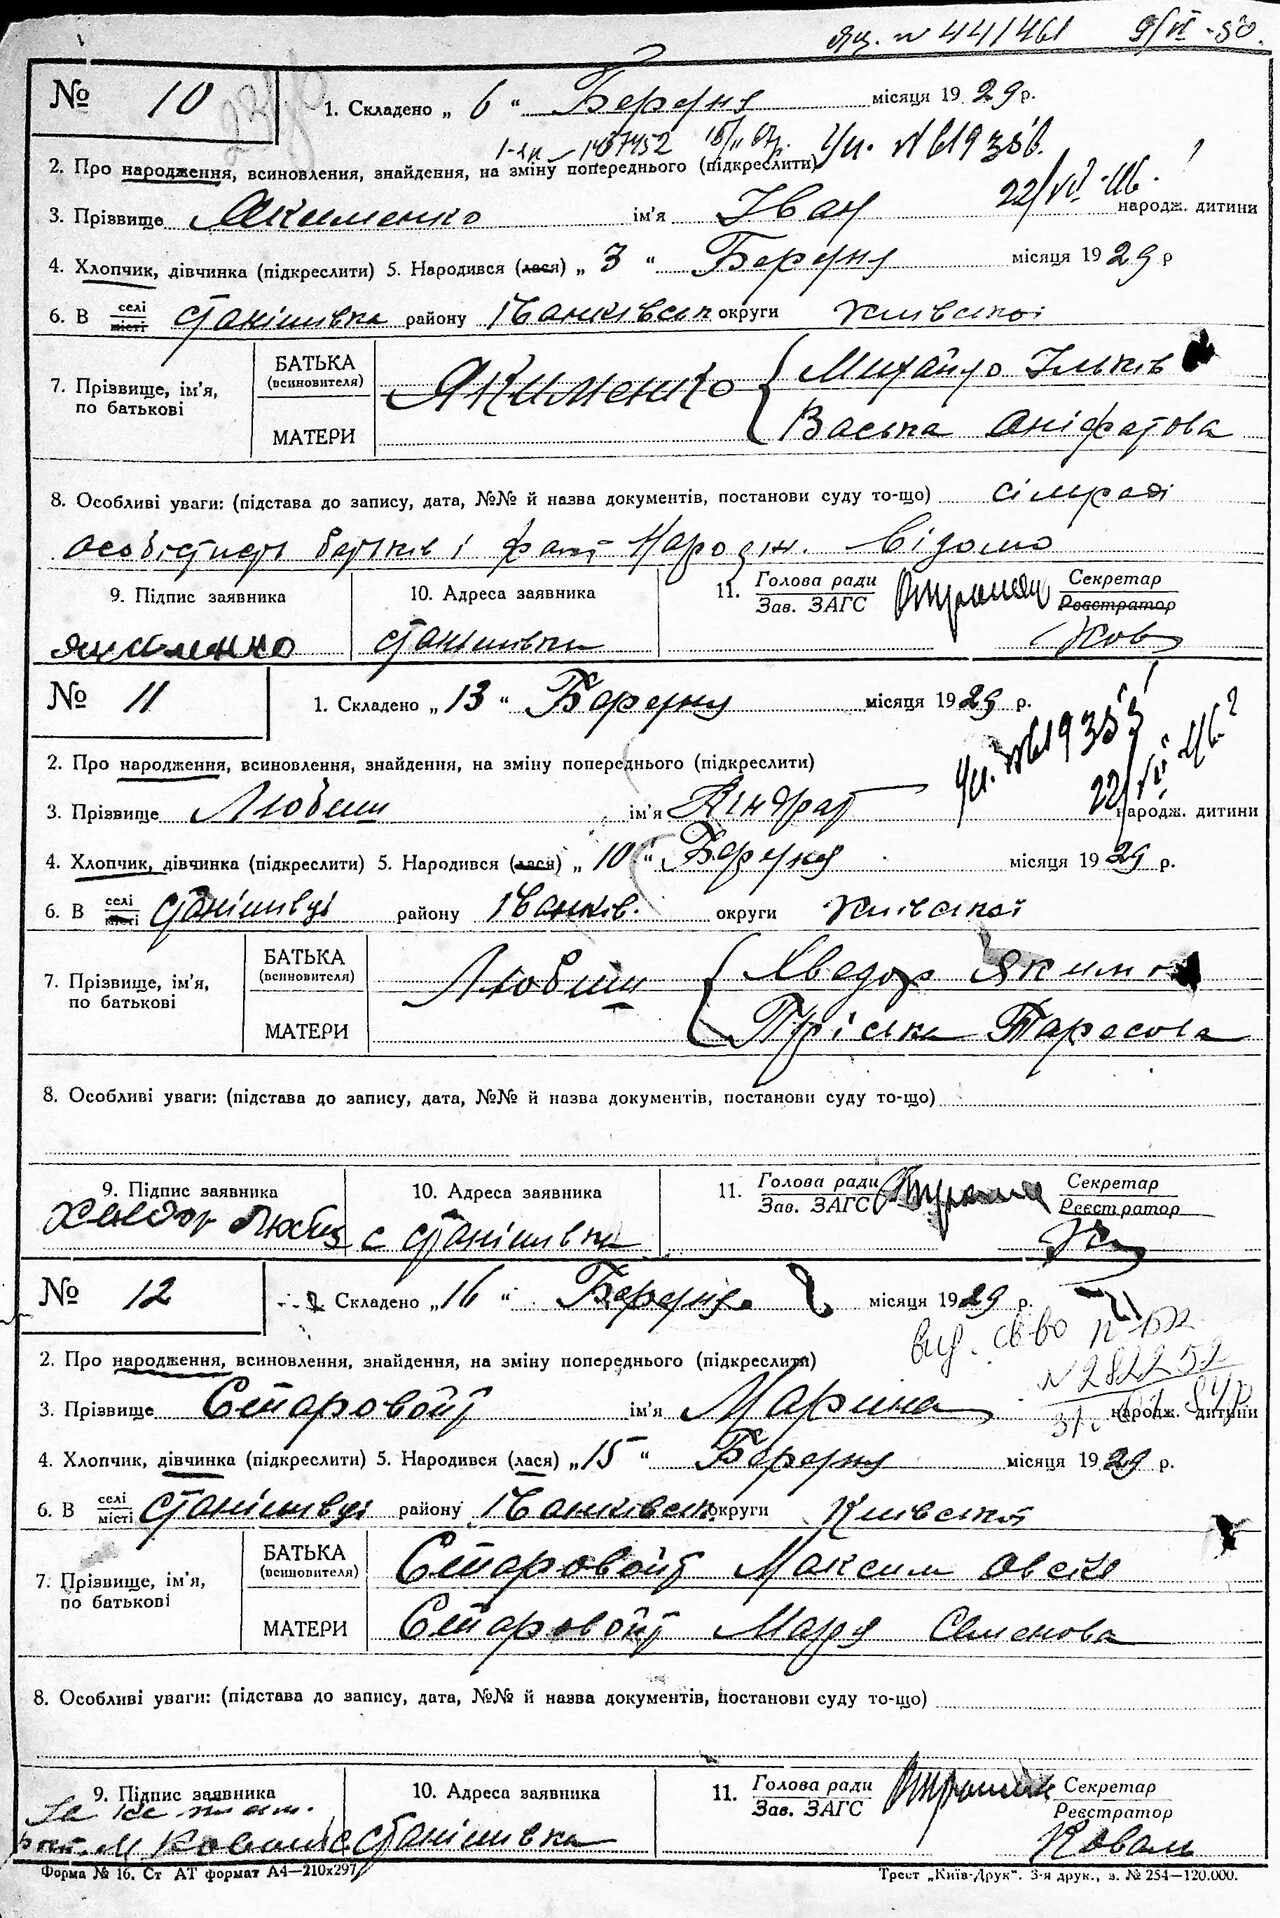 № 10
1. Складено „ 6 “ Березня місяця 19 29 р.
2. Про народження, всиновлення, знайдення, на зміну попереднього (підкреслити)
3. Прізвище Якименко ім'я Іван народж. дитини
4. Хлопчик, дівчинка (підкреслити) 5. Народився (лася) „ 3 “ Березня місяця 19 29 р
6. В селі місті Станішивка району Іванківськ округи Київської
7. Прізвище, ім'я, по батькові
БАТЬКА (всиновителя) Якименко Михайло Ільків
МАТЕРИ Васька Аніфатова
8. Особливі уваги: (підстава до запису, дата, №№ й назва документів, постанови суду то-що) сільраді
особистість батьків і факт народж. відомо
9. Підпис заявника 10. Адреса заявника 11. Голова ради Зав. ЗАГС Секретар Реєстратор
Якименко Станішивка Ков
№ 11
1. Складено „ 13 “ Березня місяця 19 29 р.
2. Про народження, всиновлення, знайдення, на зміну попереднього (підкреслити)
3. Прізвище Любиш ім'я Кіндрат народж. дитини
4. Хлопчик, дівчинка (підкреслити) 5. Народився (лася) „ 10 “ Березня місяця 19 29 р.
6. В селі місті Станішивці району Іванків. округи Київської
7. Прізвище, ім'я, по батькові
БАТЬКА (всиновителя) Любиш Якимів
МАТЕРИ Пріська Тарасова
8. Особливі уваги: (підстава до запису, дата, №№ й назва документів, постанови суду то-що)
9. Підпис заявника 10. Адреса заявника 11. Голова ради Зав. ЗАГС Секретар Реєстратор
с Станішивка
№ 12
1. Складено „ 16 “ Березня місяця 19 29 р.
2. Про народження, всиновлення, знайдення, на зміну попереднього (підкреслити)
№ 282252
3. Прізвище Старовойт ім'я Марина народж. дитини
4. Хлопчик, дівчинка (підкреслити) 5. Народився (лася) „ 15 “ Березня місяця 19 29 р.
6. В селі місті Станішивці району Іванківськ. округи Київської
7. Прізвище, ім'я, по батькові
БАТЬКА (всиновителя) Старовойт Максим
МАТЕРИ Старовойт Маря Семенова
8. Особливі уваги: (підстава до запису, дата, №№ й назва документів, постанови суду то-що)
9. Підпис заявника 10. Адреса заявника 11. Голова ради Зав. ЗАГС Секретар Реєстратор
М Коваль с Станішивка Коваль
Форма № 16. Ст АТ формат А4—210х297 Трест „Київ-Друк“. 3-я друк., з. № 254—120.000.